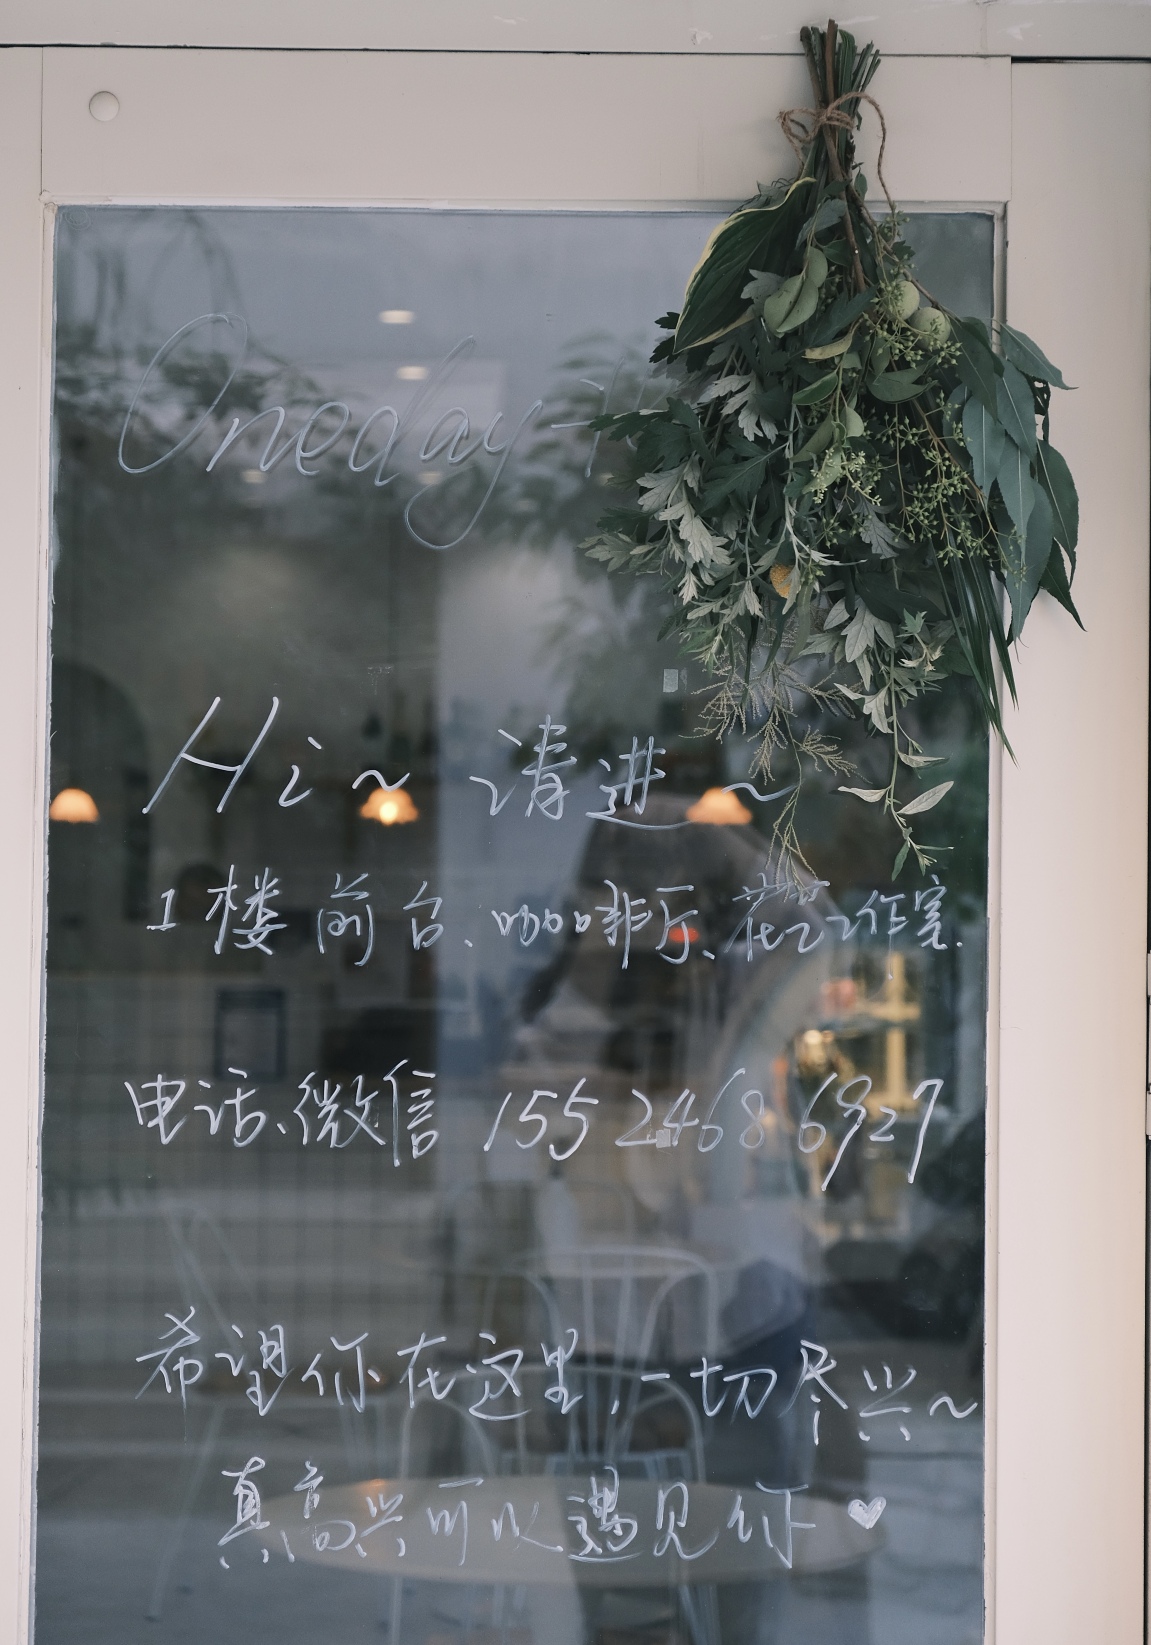 Oneday
Hi~ 请进~
1楼前台、咖啡厅、花艺工作室.
电话、微信 155 2468 6927
希望你在这里,一切尽兴~
真高兴可以遇见你♥